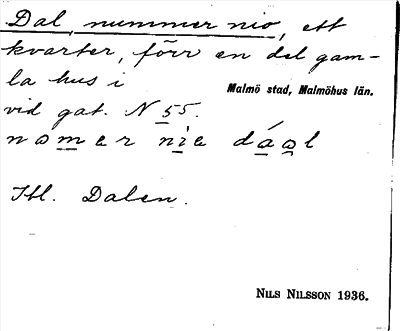 Dal, nummer nio, ett
kvarter, förr en del gam-
la hus i
Malmö stad, Malmöhus län.
vid gat. N 55.
Dalen.
NILS NILSSON 1936.